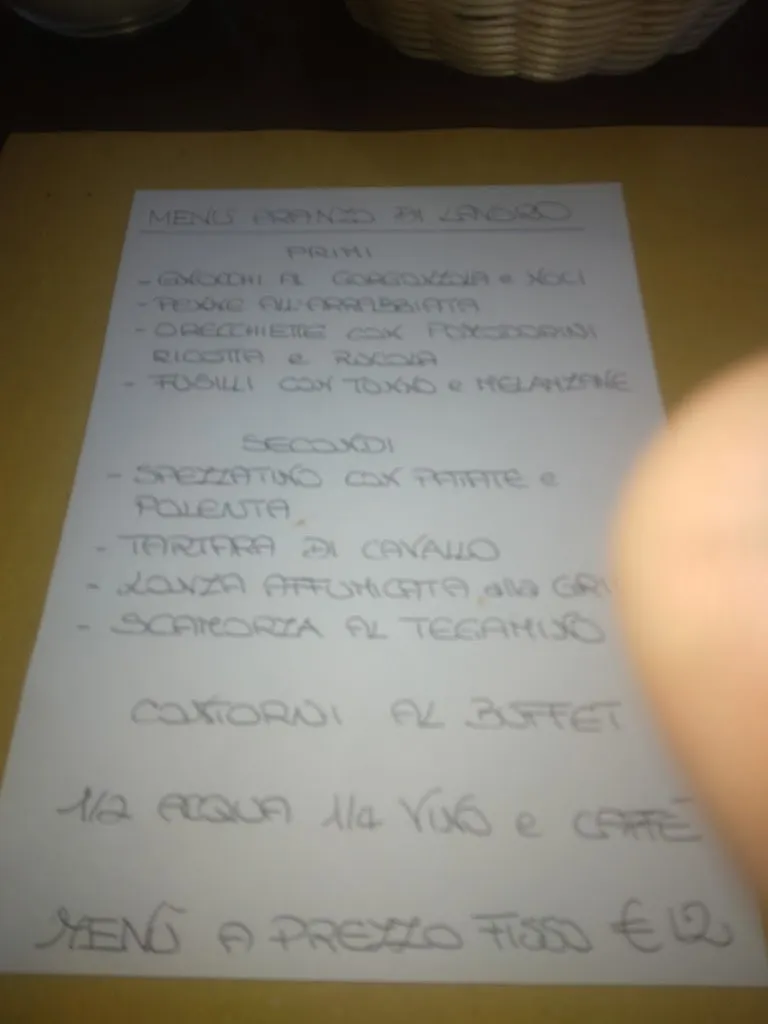 MENÙ PRANZO DI LAVORO
PRIMI
- GNOCCHI AL GORGONZOLA e NOCI
- PENNE ALL'ARRABBIATA
- ORECCHIETTE CON POMODORINI
RICOTTA e RUCOLA
- FUSILLI CON TONNO e MELANZANE
SECONDI
- SPEZZATINO CON PATATE e
POLENTA
- TARTARA DI CAVALLO
- LONZA AFFUMICATA alla GRI
- SCAMORZA AL TEGAMINO
CONTORNI AL BUFFET
1/2 ACQUA 1/4 VINO e CAFFÈ
MENÙ A PREZZO FISSO € 12